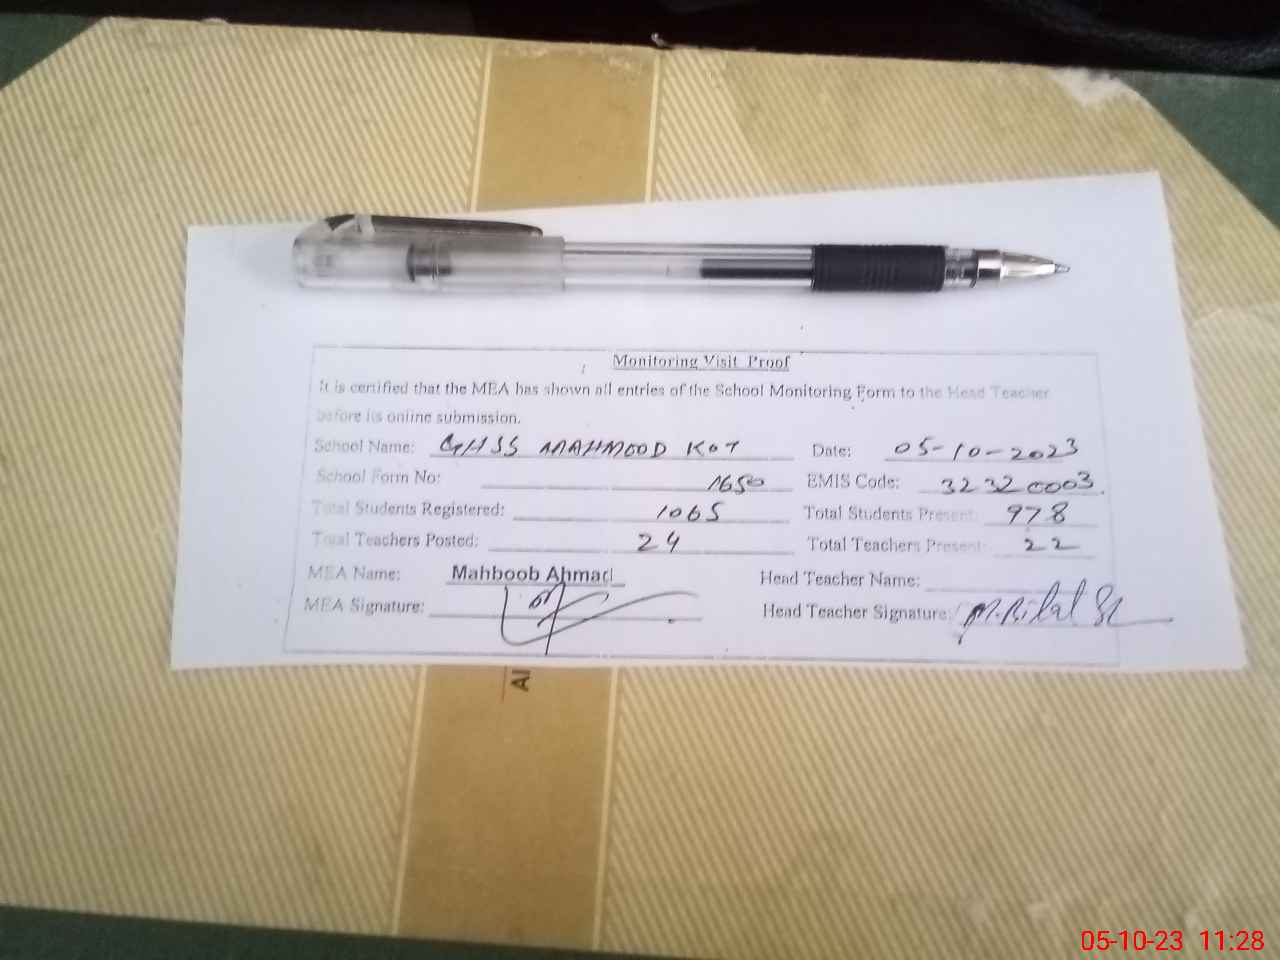 Monitoring Visit Proof
It is certified that the MEA has shown all entries of the School Monitoring Form to the Head Teacher
before its online submission.
School Name: GHSS MAHMOOD KOT Date: 05-10-2023
School Form No: 1650 EMIS Code: 32320003
Total Students Registered: 1065 Total Students Present: 978
Total Teachers Posted: 24 Total Teachers Present: 22
MEA Name: Mahboob Ahmad Head Teacher Name:
MEA Signature: Head Teacher Signature: M.Bilal
AI
05-10-23 11:28